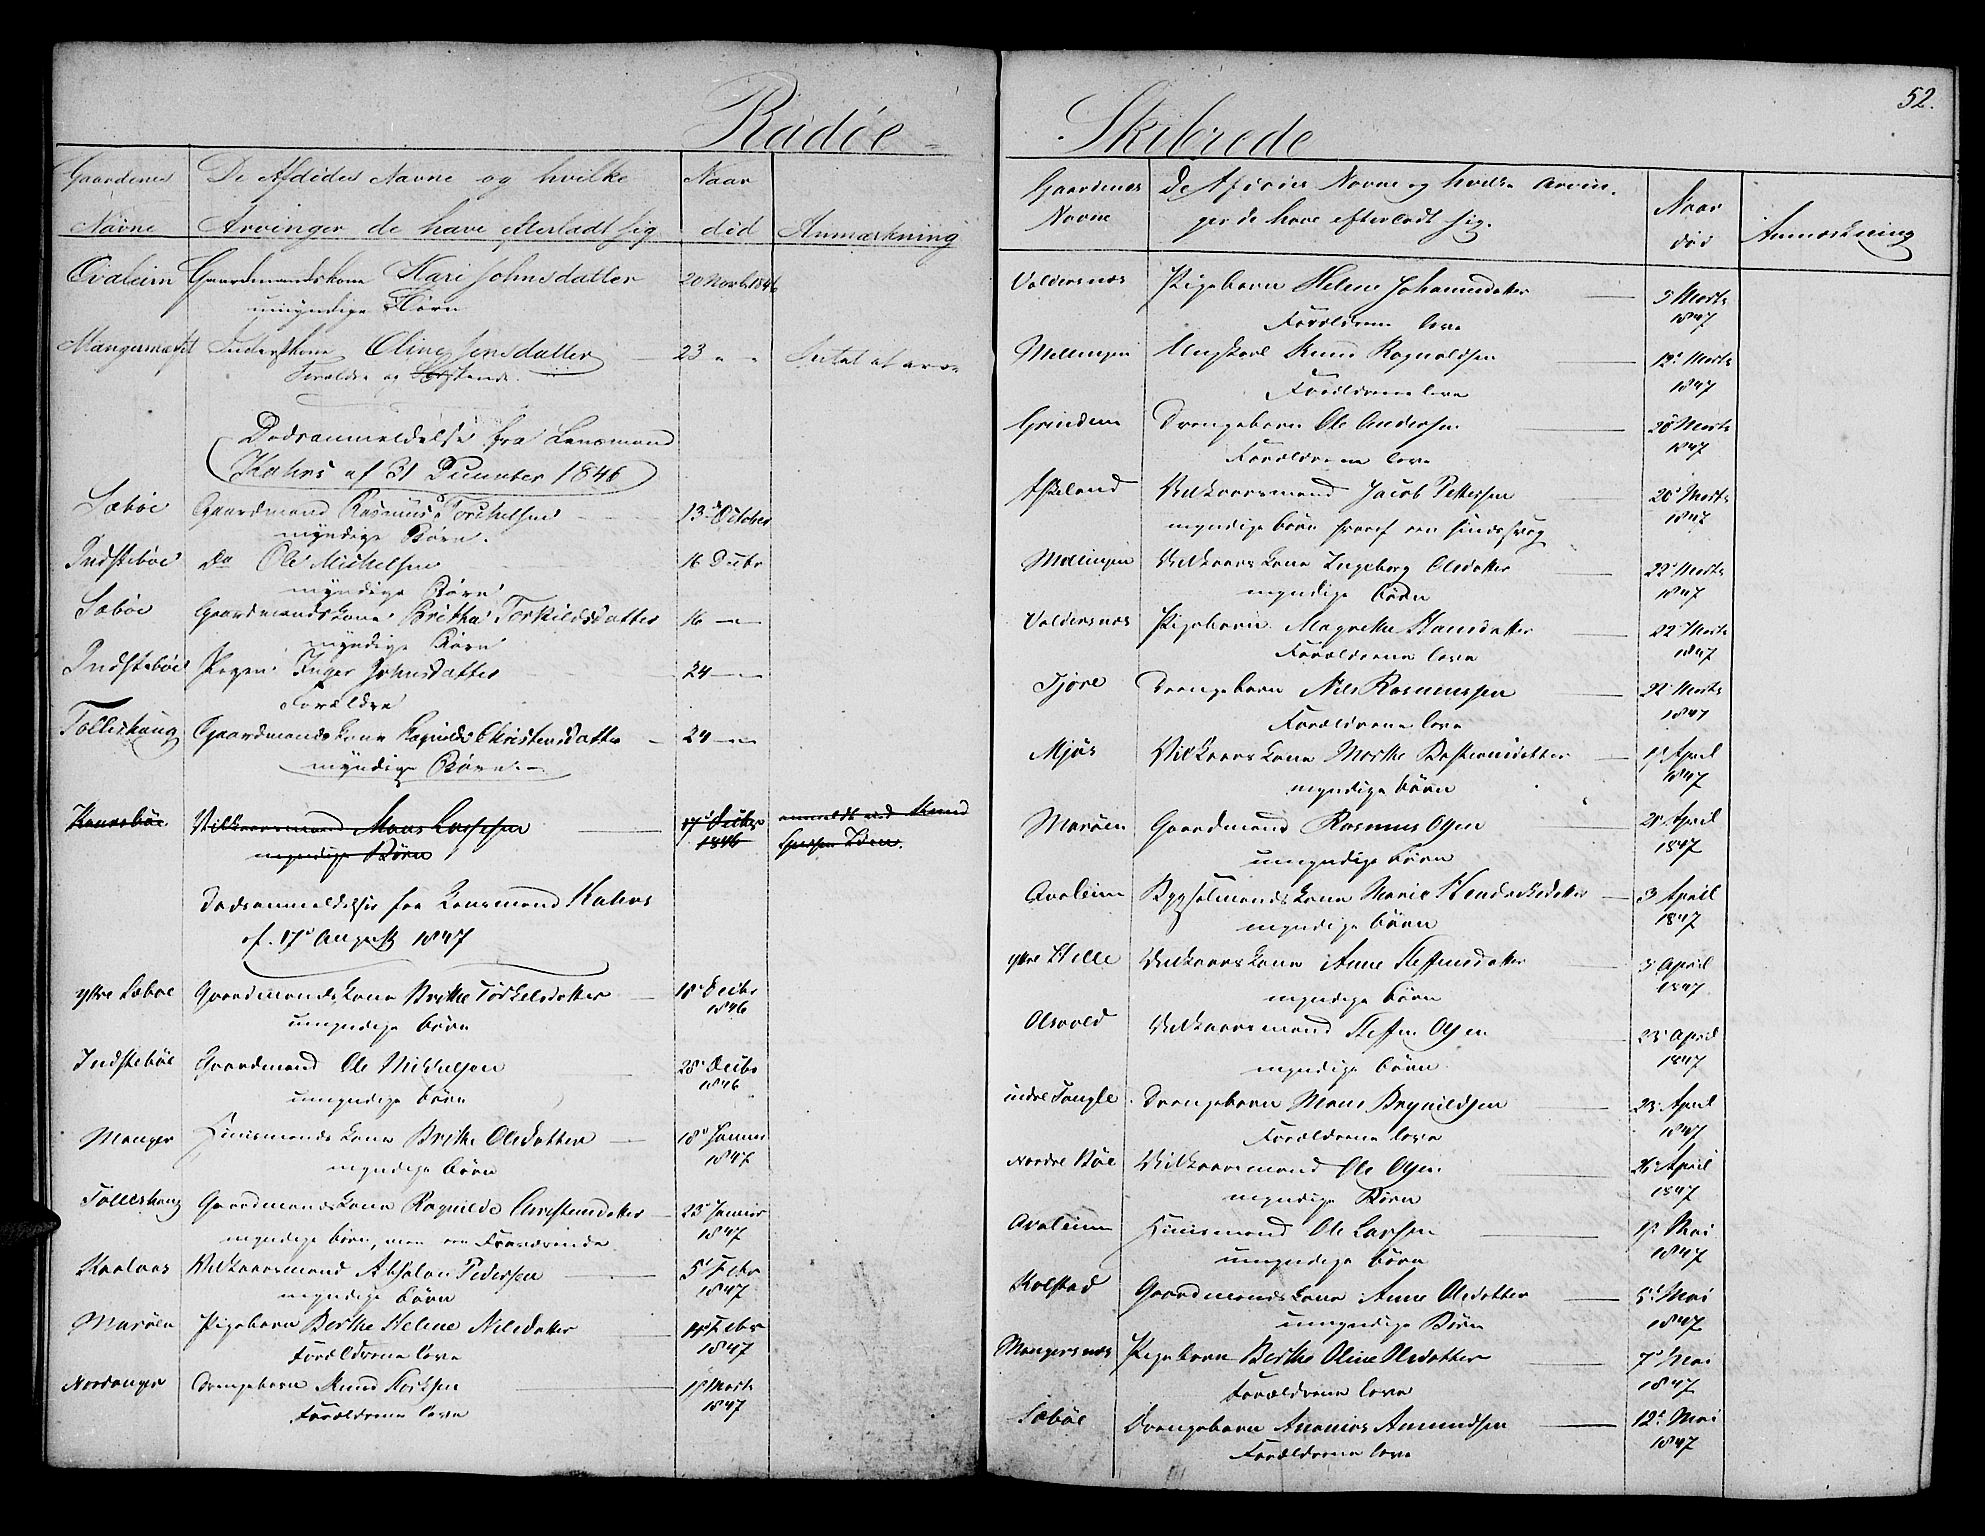 Radøe-
Gaardenes De Afdødes Navne og hvilke Naar
Navne Arvinger de have efterladt sig død Anmærkning
Qvaleim Gaardmandskone Kari Johnsdatter 20 Novb. 1846
umyndige Børn
Mangersnæset Inderstkone Oline Jensdatter 23 " "
Forældre og Søskende.
Dødsanmeldelse fra Lensmand
Kahrs af 31 December 1846
Sæbøe Gaardmand Rasmus Torchelsen 13 October
myndige Børn.
Indstebøe Do Ole Michelsen 16 Decbr
myndige Børn
Sæbøe Gaardmandskone Britha Torkildsdatter 16 — " —
myndige Børn
Indstebøe Pigen Inger Johnsdatter 24 — " —
Forældre
Tolleshaug Gaardmandskone Ragnilde Christensdatter 24 — " —
myndige Børn.
Vilkaarsmand Mons Lassesen 17 Decbr
myndige Børn 1846
Dødsanmeldelse fra Lensmand Kahrs
af 17 August 1847
ytre Sæbøe Gaardmandskone Brithe Torkelsdatter 18 Decbr
umyndige børn 1846
Indstebøe Gaardmand Ole Mikkelsen 28 Decbr
umyndige børn 1846
Manger Huusmandskone Brithe Olsdatter 18 Januar
myndige børn 1847
Tolleshaug Gaardmandskone Ragnilde Christensdatter 23 Januar
myndige børn, men en Fraværende 1847
Kaalaas Vilkaarsmand Absalon Pedersen 5 Febr
myndige børn 1847
Marøen Pigebarn Berthe Helene Nilsdatter 14 Febr
Forældrene leve 1847
Nordanger Drengebarn Knud 1 Marts
Forældrene leve 1847
Skibrede
52.
Gaardenes De Afdødes Navne og hvilke Arvin- Naar
Navne ger de have efterladt sig. død Anmærkning
Valdersnæs Pigebarn Helene Johannsdatter 5 Marts
Forældrene leve 1847
Mellingen Ungkarl Knud Ragnaldsen 12 Marts
Forældrene leve 1847
Grindem Drengebarn Ole Andersen 20 Marts
Forældrene leve 1847
Askeland Vilkaarsmand Jacob Pettersen 20 Marts
myndige børn hvoraf een sindssvag 1847
Mellingen Vilkaarskone Ingeborg Olsdatter 22 Marts
myndige børn 1847
Valdersnæs Pigebarn Magrethe Hansdatter 22 Marts
Forældrene leve 1847
Tjøre Drengebarn Nils Rasmussen 22 Marts
Forældrene leve 1847
Mjøs Vilkaarskone Marthe 1 April
myndige børn 1847
Marøen Gaardmand Rasmus Olsen 2 April
umyndige børn 1847
Qvaleim Bygselmandskone Marie Hendriksdatter 3 April
myndige børn 1847
ytre Helle Vilkaarskone Anne Steffensdatter 3 April
myndige børn 1847
Olsvold Vilkaarsmand Steffen Olsen 23 April
myndige børn. 1847
indre Tougle Drengebarn Mons Brynildsen 23 April
Forældrene leve 1847
Nordre Bøe Vilkaarsmand Ole Olsen 26 April
myndige Børn 1847
Qvaleim Huusmand Ole Larsen 1 Mai
umyndige børn 1847
Kolstad Gaardmandskone Anne Olsdatter 5 Mai
umyndige Børn 1847
Mangersnæs Pigebarn Berthe Oline Olsdatter 7 Mai
Forældrene leve 1847
Sæbøe Drengebarn Ananias Amundsen 12 Mai
Forældrene leve 1847